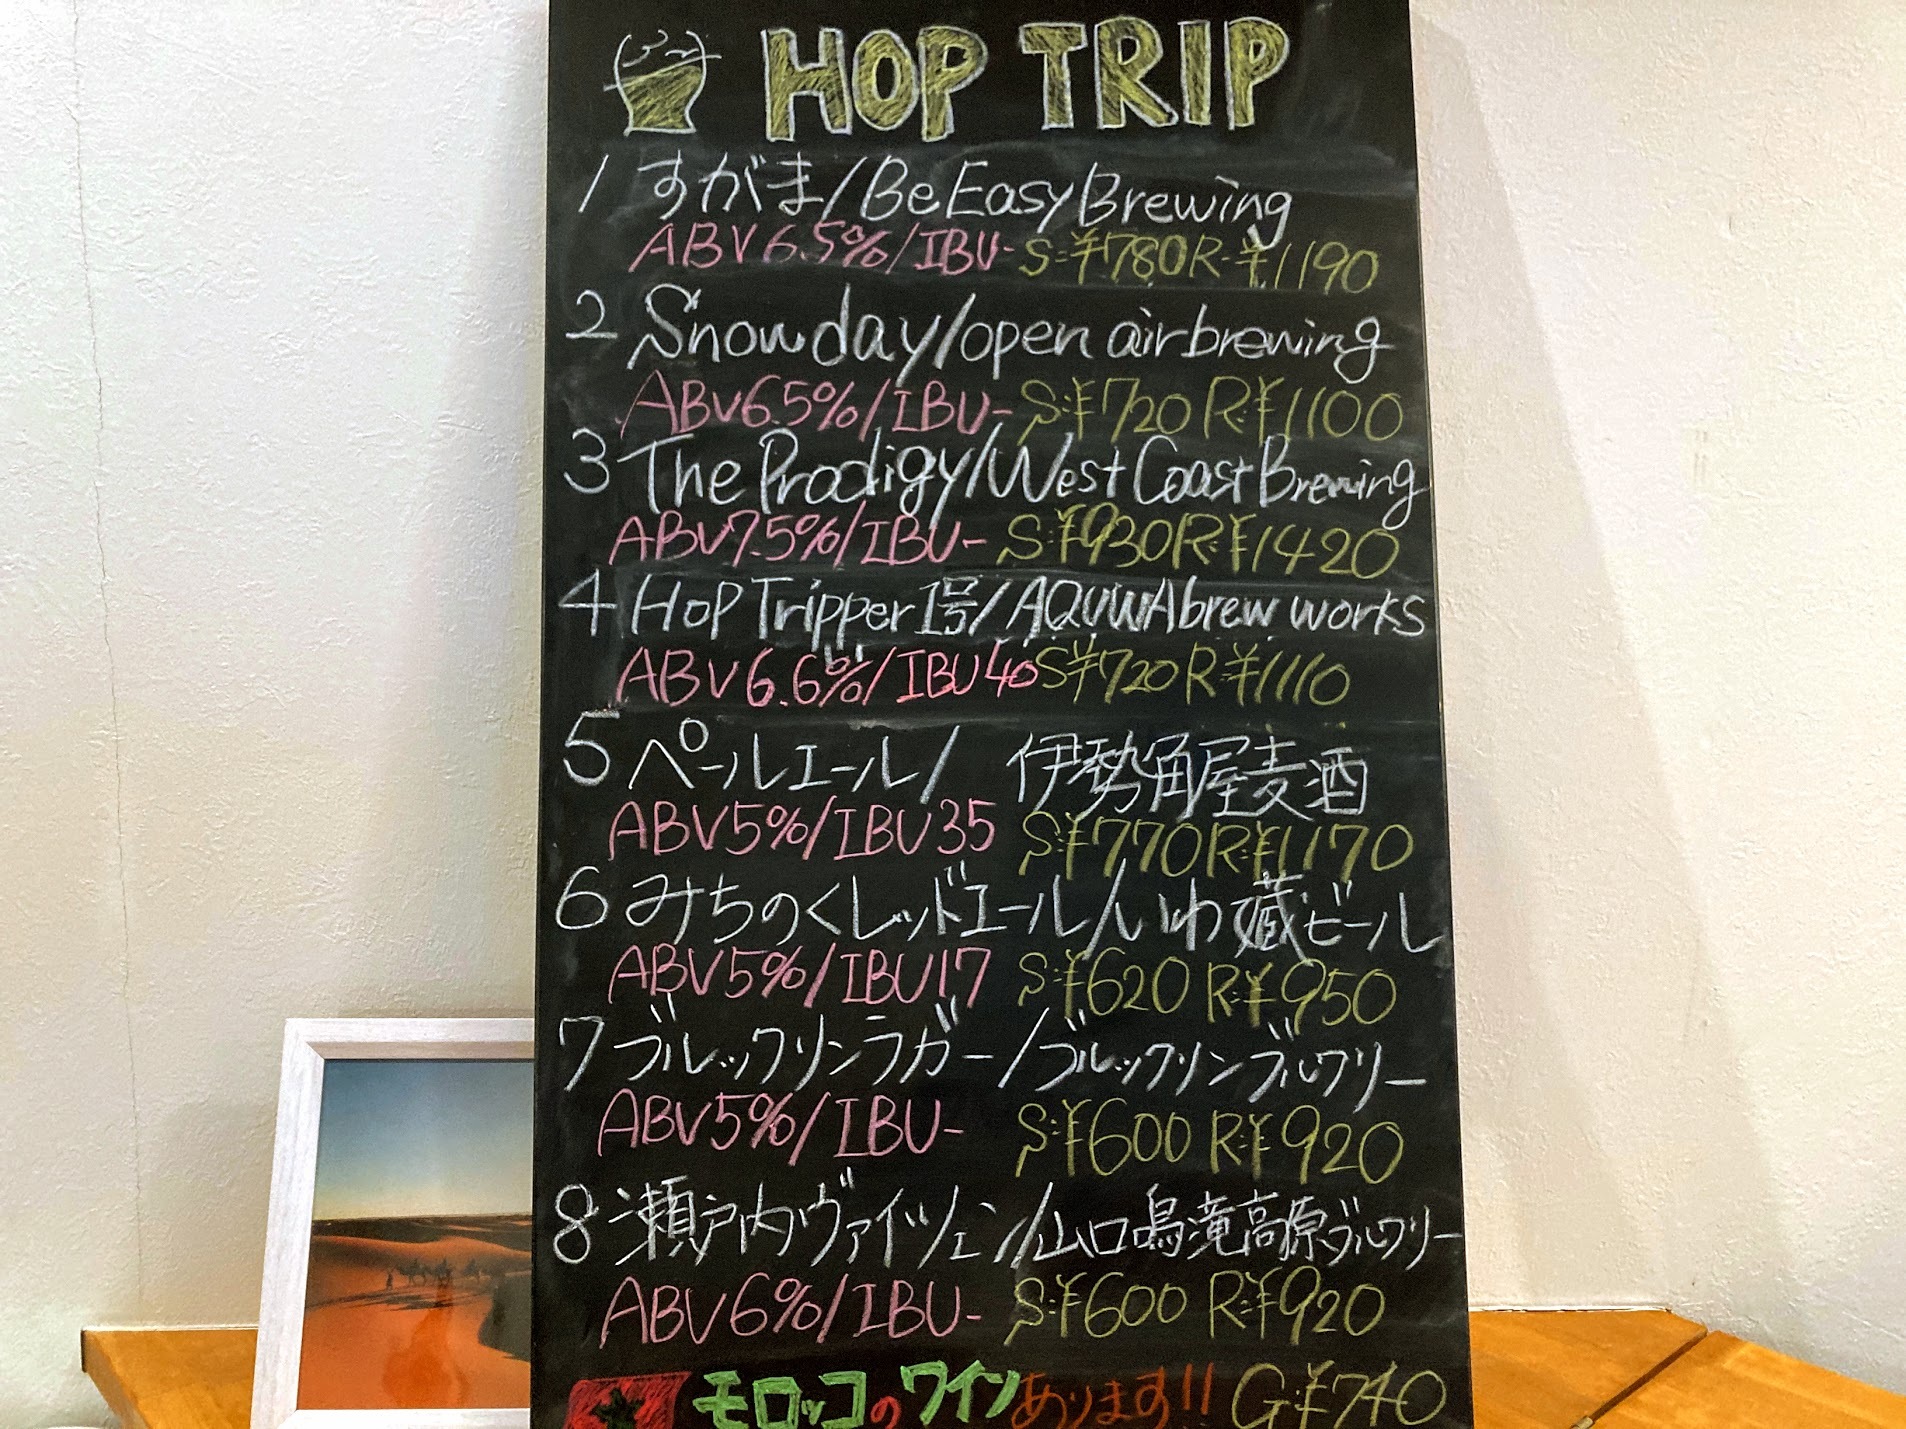 HOP TRIP
1 すがま/Be Easy Brewing
ABV 6.5%/IBU- S:¥780 R:¥1190
2 Snow day/open air brewing
ABV6.5%/IBU- S:¥720 R:¥1100
3 The Prodigy/West Coast Brewing
ABV7.5%/IBU- S:¥930 R:¥1420
4 Hop Tripper 1号/AQUWA brew works
ABV 6.6%/IBU40 S¥720 R¥1110
5 ペールエール/ 伊勢角屋麦酒
ABV5%/IBU35 S:¥770 R:¥1170
6 みちのくレッドエール/いわ蔵ビール
ABV5%/IBU17 S:¥620 R:¥950
7 ブルックリンラガー/ブルックリンブルワリー
ABV5%/IBU- S:¥600 R:¥920
8 瀬戸内ヴァイツェン/山口鳴滝高原ブルワリー
ABV6%/IBU- S:¥600 R:¥920
モロッコのワインあります!! G:¥740